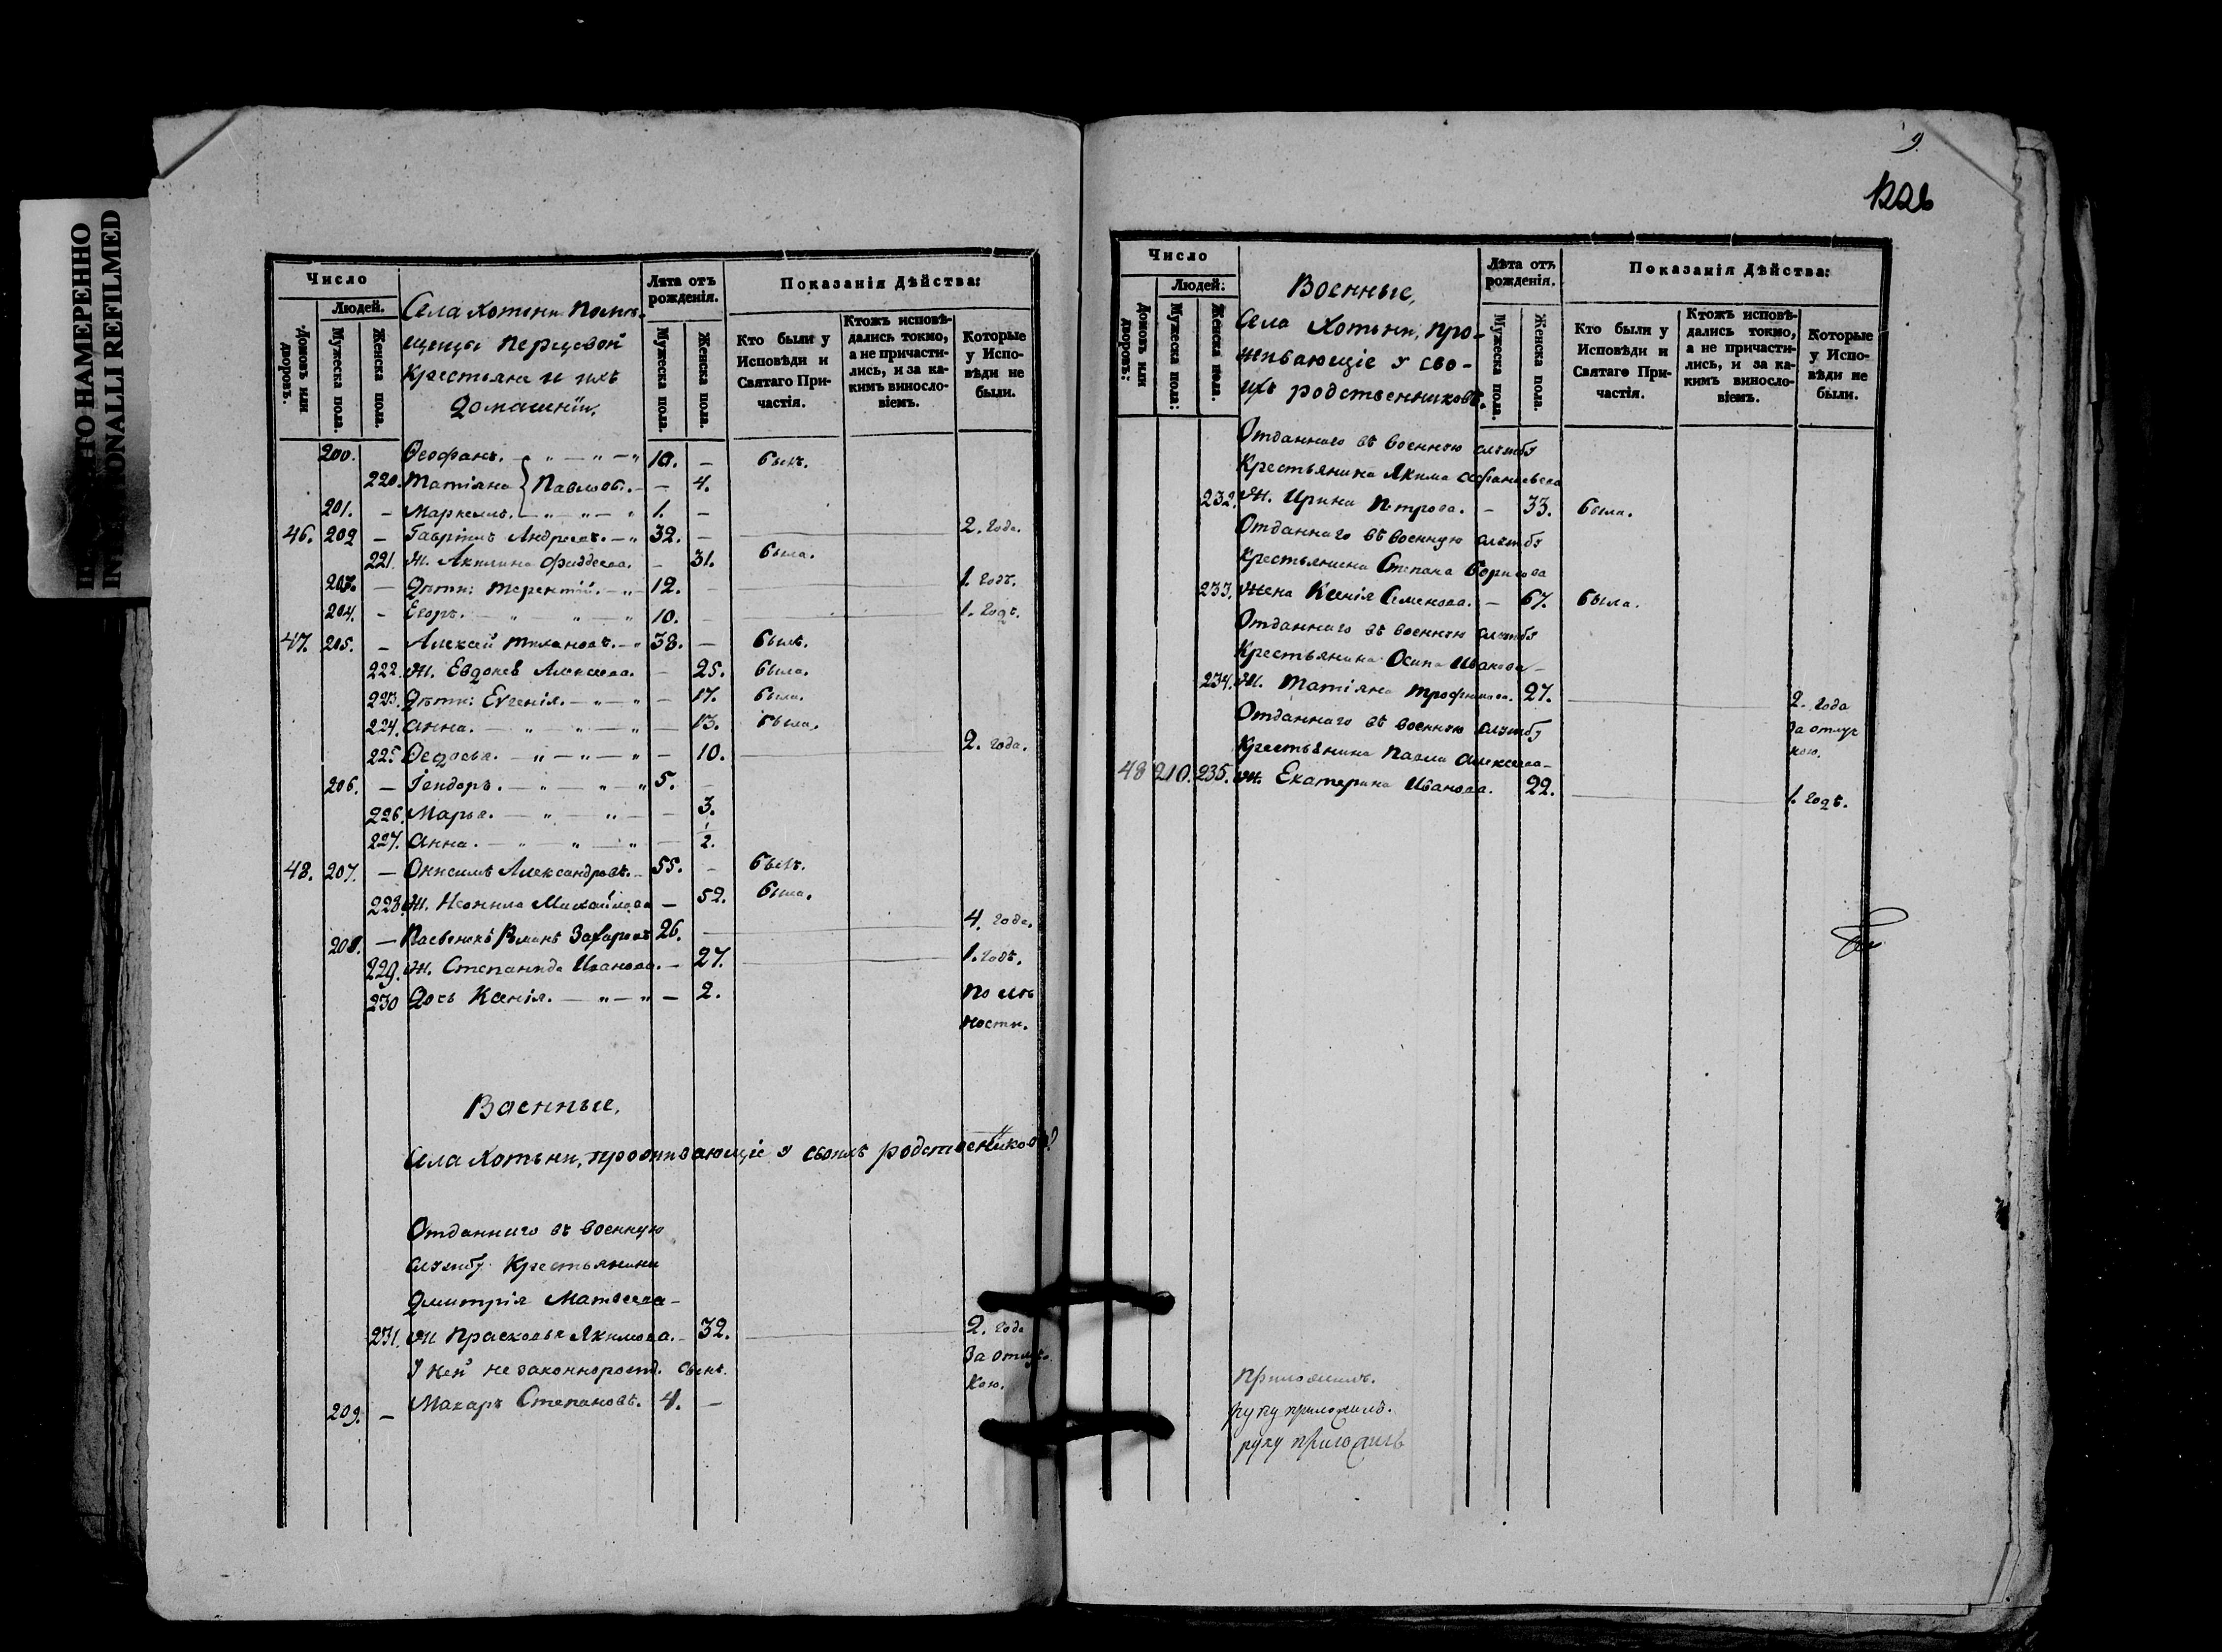 ТО НАМЕРЕННО
IN IONALLI REFILMED
Число
Людей.
Домовъ или дворовъ.
Мужеска пола.
Женска пола.
Села Хотыни Помѣ-
щицы Перцевой
Крестьяне и ихъ
Домашніи.
Лѣта отъ рожденія.
Мужеска пола.
Женска пола.
Показанія Дѣйства:
Кто были у Исповѣди и Святаго Причастія.
Ктожъ исповѣдались токмо, а не причастились, и за какимъ винословіемъ.
Которые у Исповѣди не были.
200. Ѳеофанъ. — „ — „ — „ 10. — былъ.
220. Татіяна } Павловы. — — 4.
201. — Маркеллъ. — „ — „ — „ 1. —
46. 202 — Гавріилъ Андреевъ. — „ 32. — 2. года.
221. Ж. Акилина Фаддеева. — 31. была.
203. — Дѣти: Терентій. — „ — 12. — 1. годъ.
204. — Егоръ. — „ — „ 10. — 1. годъ.
47. 205. — Алексей Тихановъ. — „ 38. — былъ.
222. Ж. Евдокея Алексеева. — 25. была.
223. Дѣти: Евгенія. — „ — „ — 17. была.
224. Анна. — „ — „ — „ — 13. была.
225. Ѳедосья. — „ — „ — „ — 10. 2. года.
206. — Ісидоръ. — „ — „ — „ 5. —
226. Марья. — „ — „ — — 3.
227. Анна. — „ — „ — „ — 2.
48. 207. — Онисимъ Александровъ. — 55. — былъ.
228. Ж. Неонила Михайлова — 52. была.
208. — Пасынокъ Романъ Захаровъ 26. 4. года.
229. Ж. Степанида Иванова. — 27. 1. годъ.
230 Дочь Ксенія. — „ — „ — 2. По мл
ности.
Военные,
Села Хотыни, проживающіе у своихъ родствениковъ
Отданнаго въ военную
службу Крестьянина
Дмитрія Матвеева —
231. Ж Прасковья Якимова. — 32. 2. года
У ней незаконнорожд. сынъ. За отлуч-
кою.
209. — Макаръ Степановъ. 4. —
9.
1226
Число
Людей:
Домовъ или дворовъ:
Мужеска пола:
Женска пола.
Военные,
Села Хотыни, про-
живающіе у сво-
ихъ родственниковъ.
Лѣта отъ рожденія.
Мужеска пола.
Женска пола.
Показанія Дѣйства:
Кто были у Исповѣди и Святаго Причастія.
Ктожъ исповѣдались токмо, а не причастились, и за какимъ винословіемъ.
Которые у Исповѣди не были.
Отданнаго въ военную службу
Крестьянина Якима Афанасьева
232. Ж. Ирина Петрова. — 33. была.
Отданнаго въ военную службу
Крестьянина Степана Борисова
233. Жена Ксенія Семенова. — 67. была.
Отданнаго въ военную службу
Крестьянина Осипа Иванова —
234. Ж. Татіяна Трофимова. 27. 2. года
Отданнаго въ военную службу За отлуч
Крестьянина Павла Алексеева — кою.
48 210. 235. Ж. Екатерина Иванова. 22. 1. годъ.
Приложилъ.
руку приложилъ.
руку приложилъ